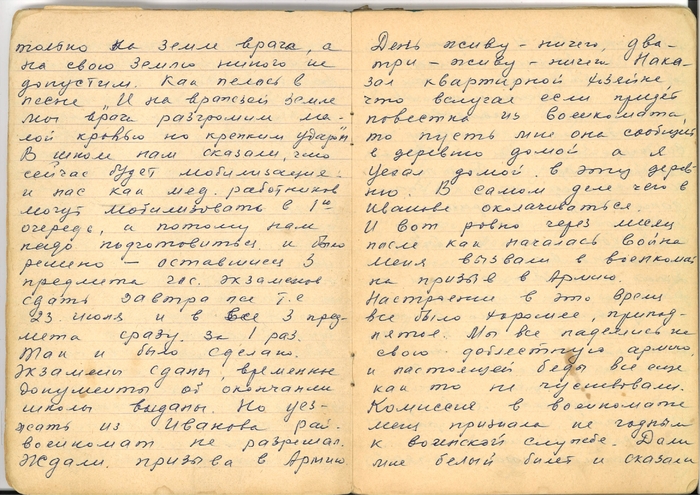 только на земле врага, а
на свою землю никого не
допустим. Как пелось в
песне „И на вражьей земле
мы врага разгромим ма-
лой кровью но крепким ударом"
В школе нам сказали, что
сейчас будет мобилизация.
и нас как мед. работников
могут мобилизовать в 1ю
очередь, а потому нам
надо подготовиться, и было
решено — оставшиеся 3
предмета гос. экзаменов
сдать завтра же т.е
23. июня и в все 3 пред-
мета сразу. за 1 раз.
Так и было сделано.
Экзамены сданы, временные
документы об окончании
школы выданы. Но уез-
жать из Иванова рай.
военкомат не разрешал.
Ждали. призыва в Армию.
День живу - ничего, два-
три - живу - ничего. Нака-
зал квартирной хозяйке
что вслучае если придёт
повестка из военкомата,
то пусть мне она сообщит
в деревню домой а я
уехал домой. в эту дерев-
ню. В самом деле чего в
Иванове околачиваться.
И вот ровно через месяц
после как началась война
меня вызвали в военкомат
на призыв в Армию.
Настроение в это время
все было хорошее, припод-
нятое. Мы все надеялись на
свою доблестную армию
и настоящей беды все еще
как то не чуствовали.
Комиссия в военкомате
меня признала не годным
к воинской службе. Дали
мне белый билет и сказали